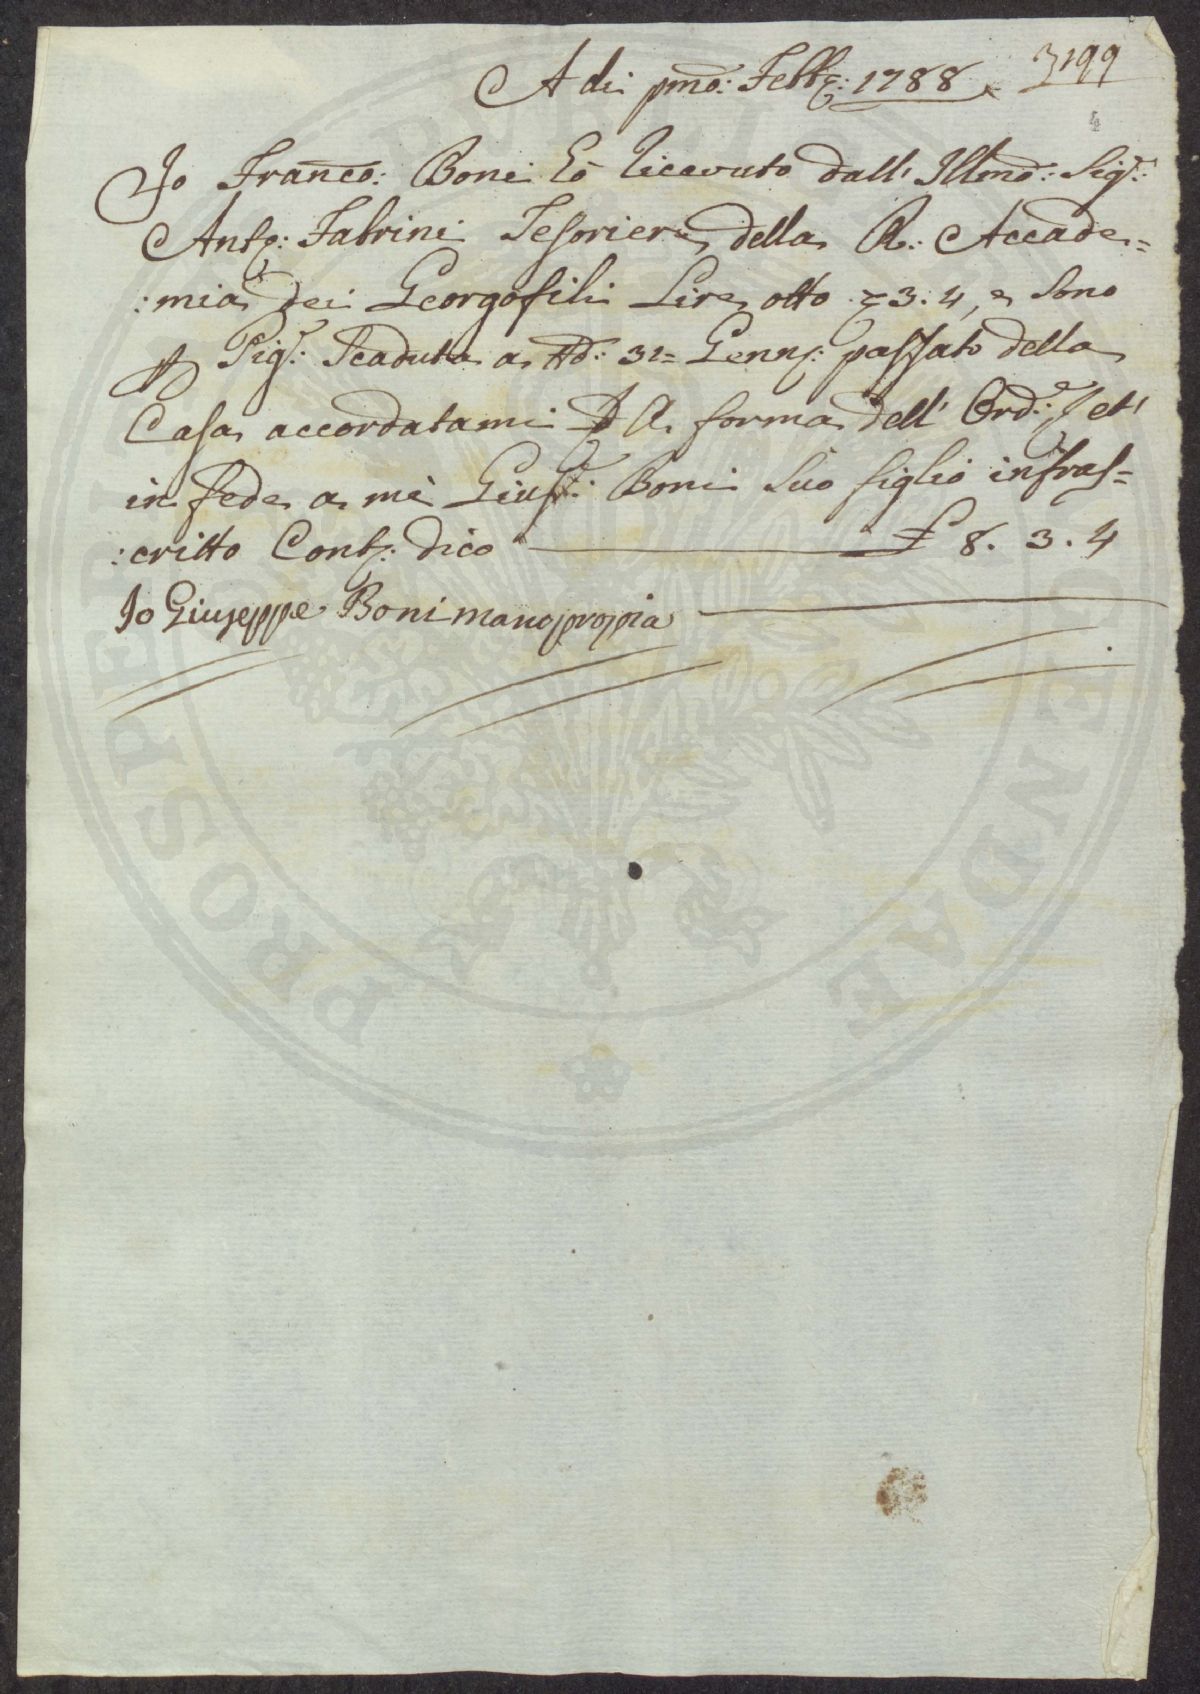 A di pmo: Febb: 1788
3199
4
Jo Franco: Boni ho ricevuto dall' Illmo: Sig:
Anto: Fabrini Tesoriere della R: Accade=
:mia dei Georgofili Lire otto 3: 4, e sono
Pig: Scaduta a dd: 31= Genn: passato della
Casa accordatami A forma dell' Ord: et
in fede a me Gius: Boni suo figlio infras=
:critto Cont: dico £ 8. 3. 4
Jo Giuseppe Boni mano propia
PROSPERITATI PUBLICAE AUGENDAE